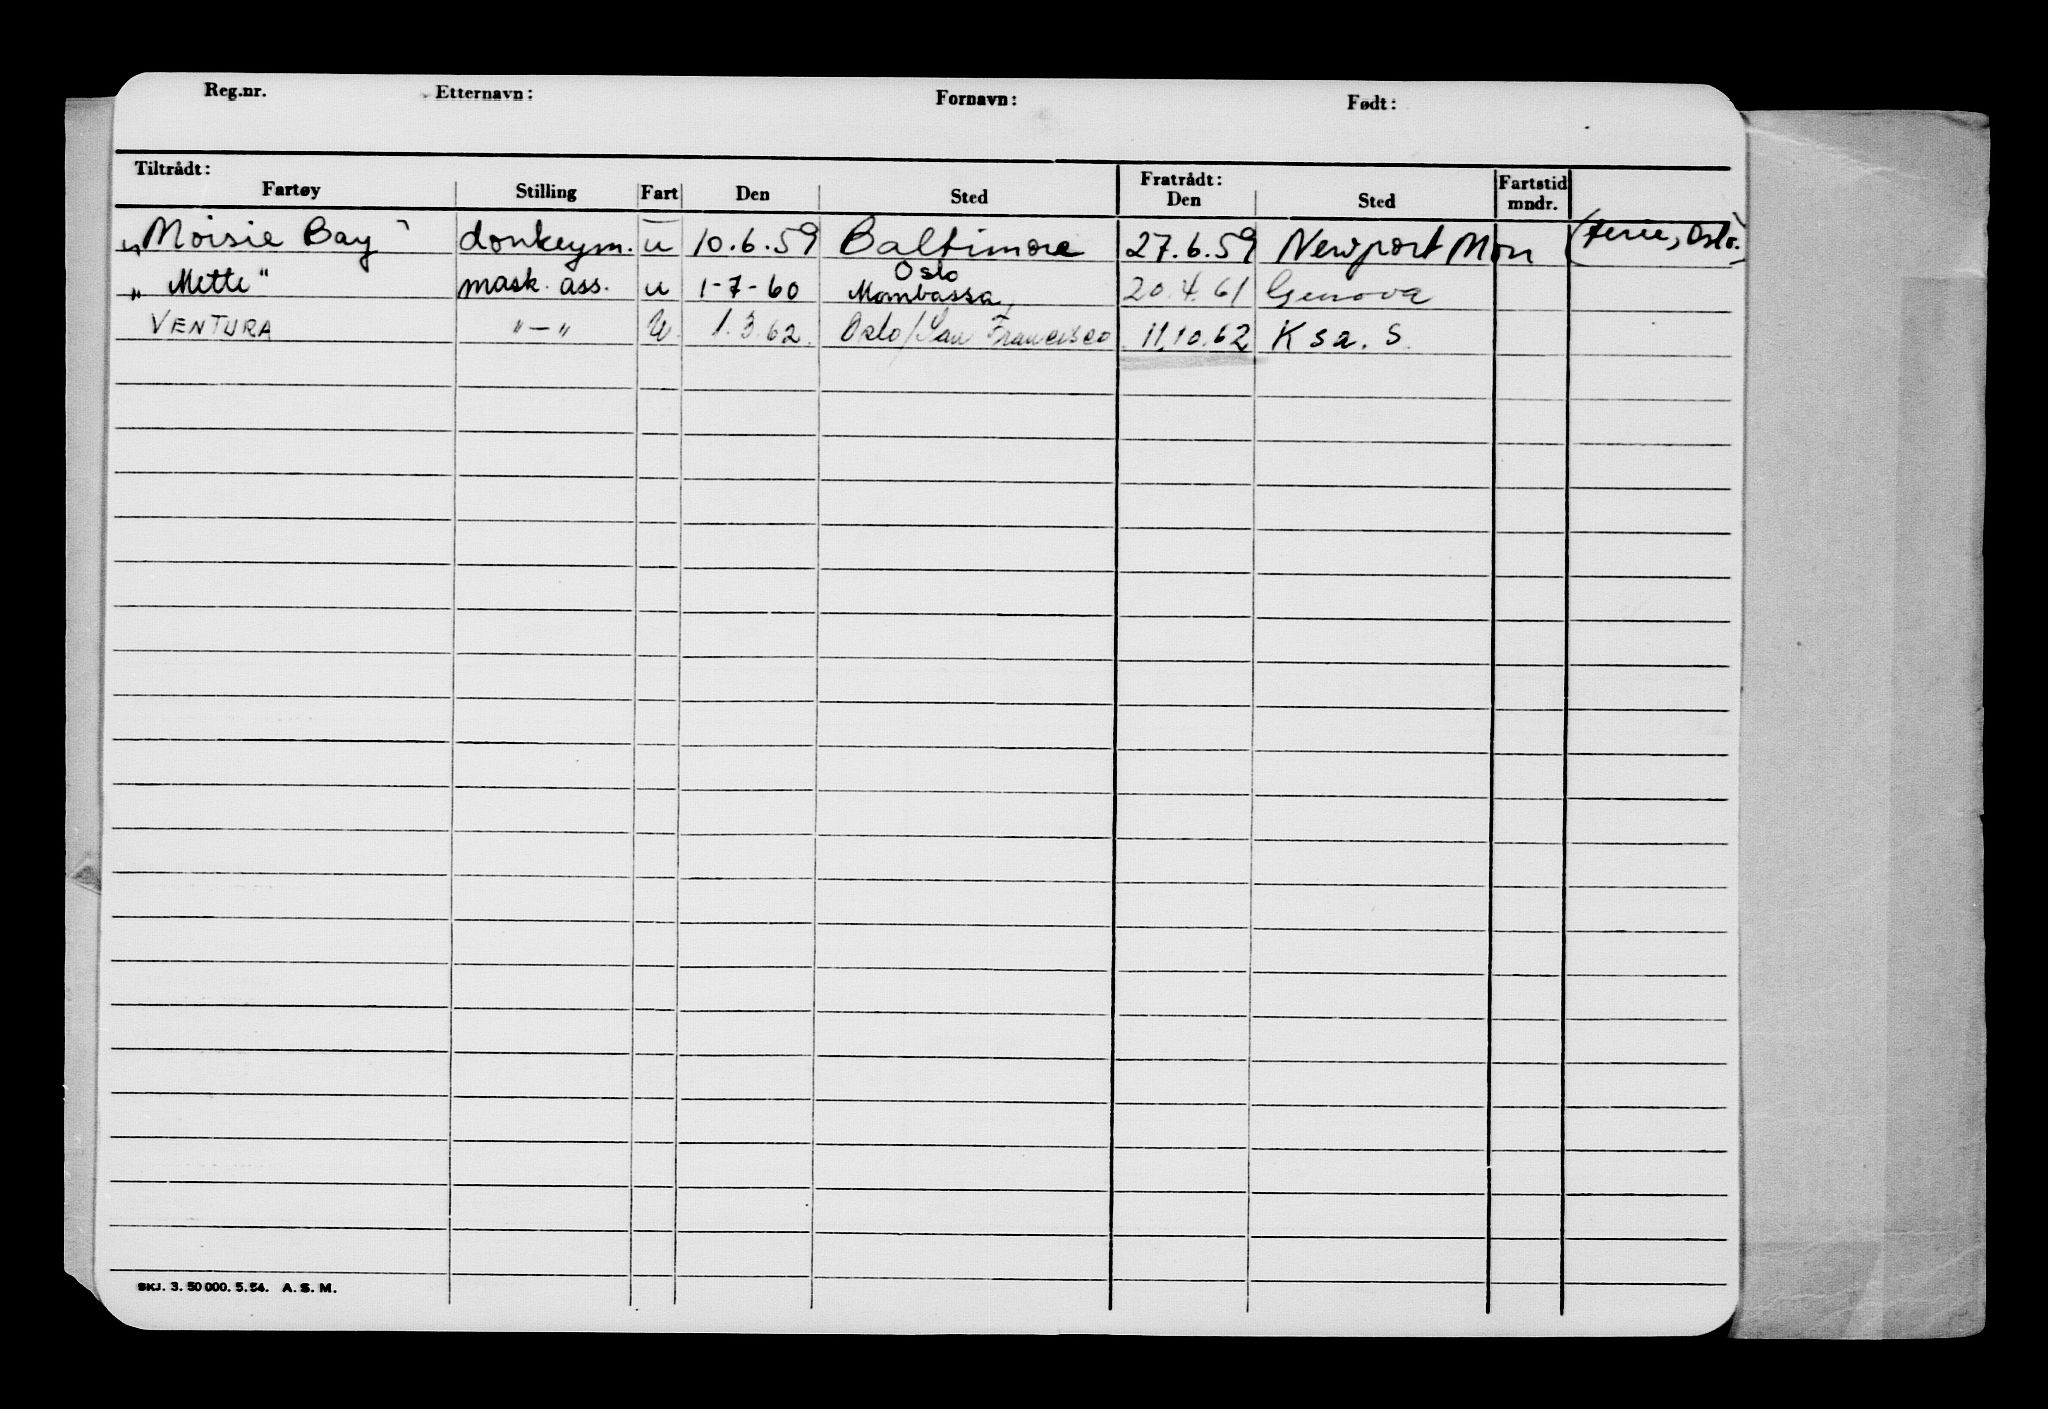 Reg.nr. Etternavn: Fornavn: Født:
Tiltrådt: Fratrådt:
Fartøy Stilling Fart Den Sted Den Sted Fartstid mndr.
„Moisie Bay" donkeym. u 10.6.59 Baltimore 27.6.59 Newport Mon (ferie, Oslo.)
„Mette" mask. ass. u 1-7-60 Oslo Mombassa, 20.4.61 Genova
VENTURA "—" U. 1.3.62. Oslo/San Francisco 11.10.62 K sa. S.
SKJ. 3. 50 000. 5. 54. A. S. M.